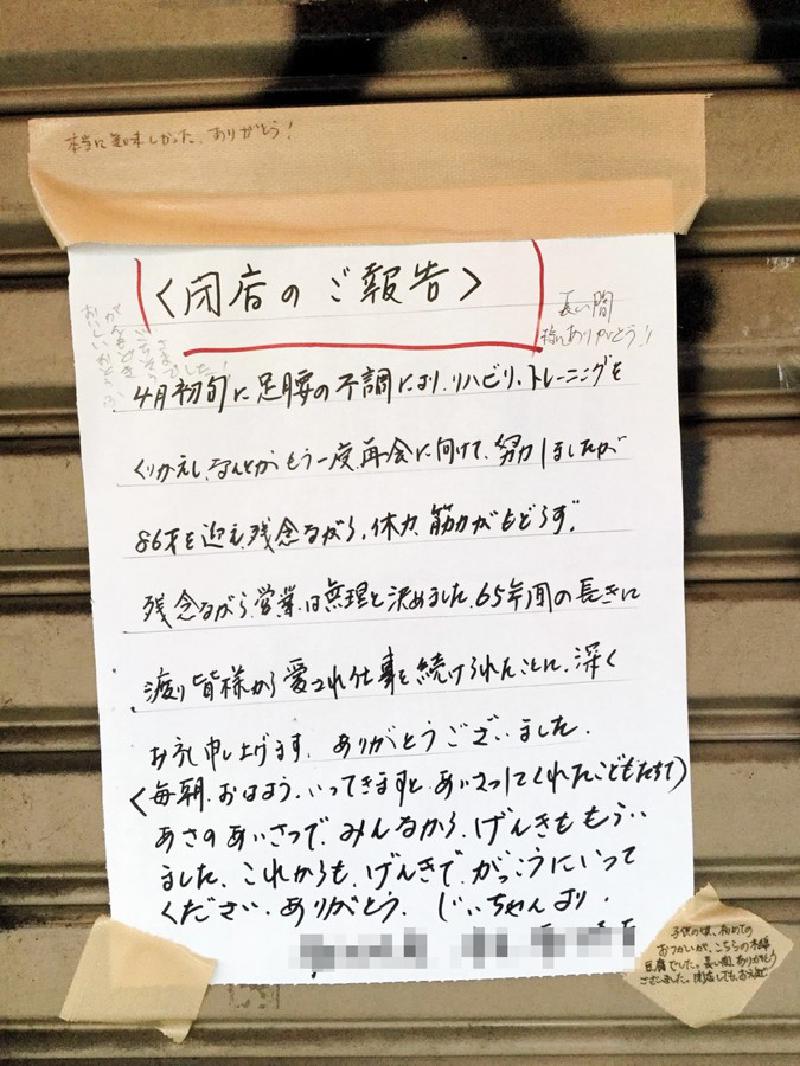 本当に美味しかった。ありがとう！
〈閉店のご報告〉
長い間
ありがとう!!
4月初旬に足腰の不調により、リハビリ、トレーニングを
くりかえし、なんとか、もう一度、再会に向けて、努力しましたが
86才を迎え、残念ながら、体力、筋力がもどらず、
残念ながら、営業は無理と決めました。65年間の長きに
渡り皆様から愛され仕事を続けられたことに、深く
お礼申し上げます。ありがとうございました。
(毎朝、おはよう、いってきますと、あいさつしてくれたこどもたちて)
あさのあいさつで、みんなから、げんきをもらい
ました、これからも、げんきで、がっこうにいって
ください、ありがとう、じいちゃんより、
子供の頃、初めての
おつかいが、こちらの木綿
豆腐でした。長い間、ありがとう
ございました。閉店しても、お元気で